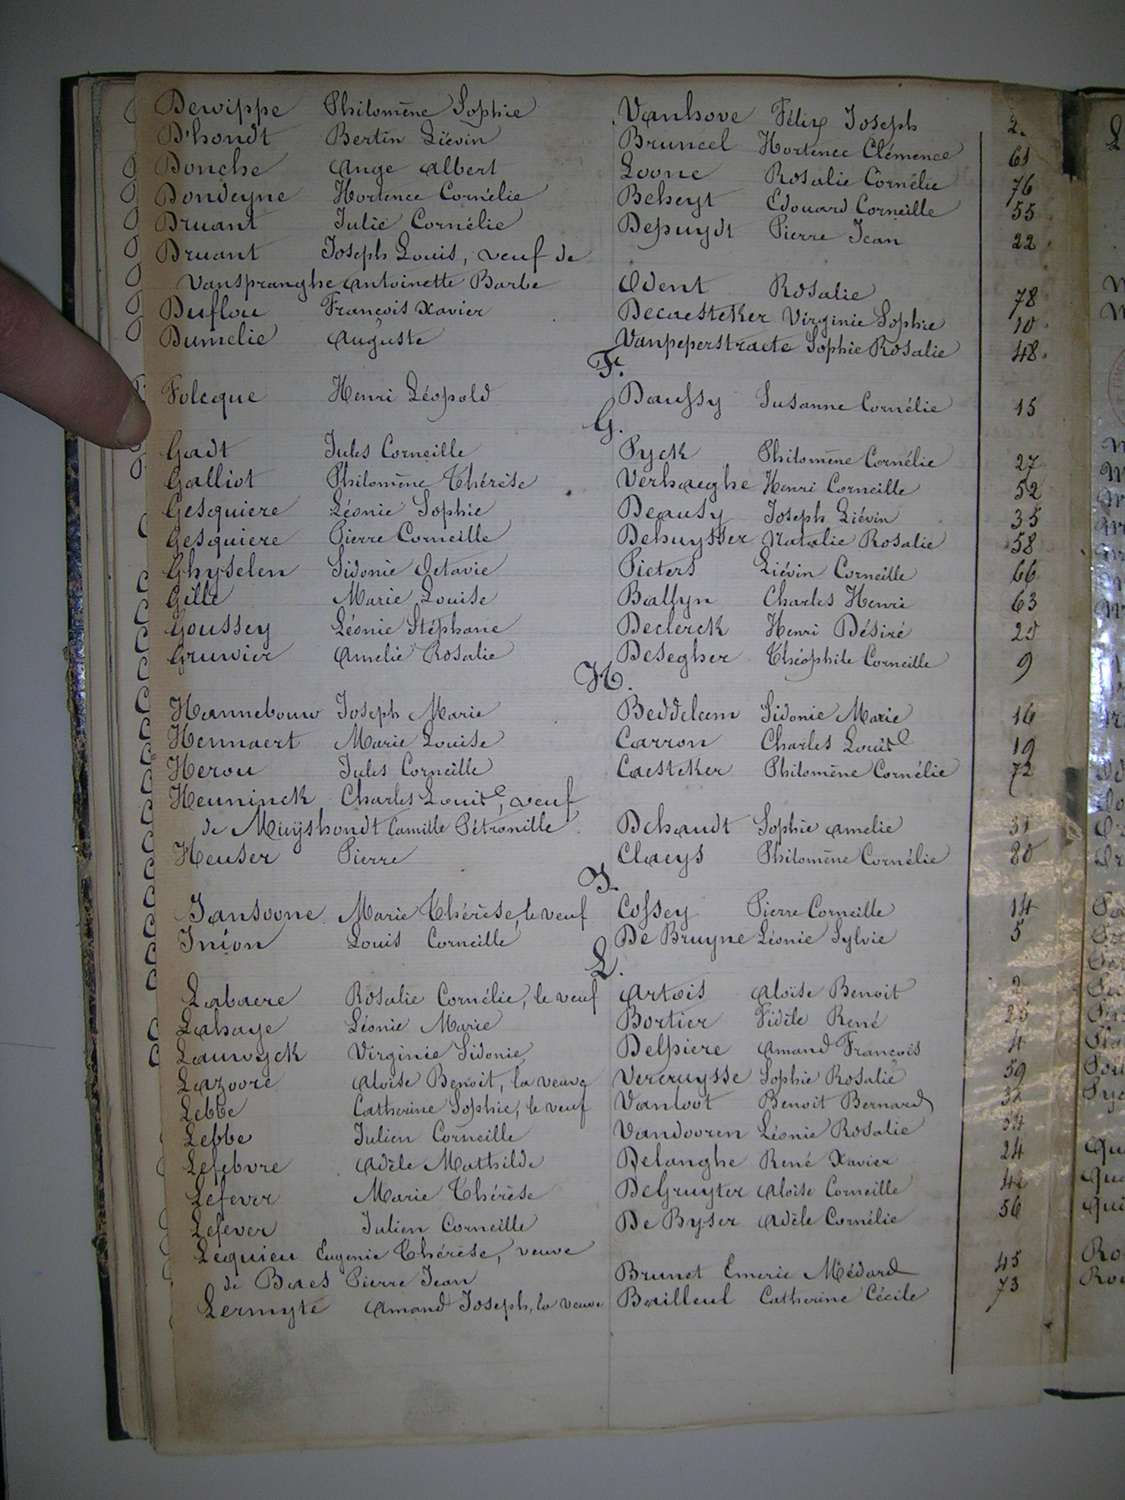 Dewippe Philomène Sophie Vanhove Félix Joseph 2.
D'hondt Bertin Liévin Bruneel Hortence Clémence 61
Donche Ange Albert Loone Rosalie Cornélie 76
Dondeyne Hortence Cornélie Beheyt Edouard Corneille 55
Druant Julie Cornélie Depuydt Pierre Jean 22
Druant Joseph Louis, veuf de
Vanspranghe Antoinette Barbe Odent Rosalie 78
Duflou François Xavier Decaesteker Virginie Sophie 10
Dumelie Auguste Vanpeperstraete Sophie Rosalie 48
F.
Folcque Henri Léopold Daussy Susanne Cornélie 15
G.
Gadt Jules Corneille Pyck Philomène Cornélie 27
Galliot Philomène Thérèse Verhaeghe Henri Corneille 52
Gesquiere Léonie Sophie Deausy Joseph Liévin 35
Gesquiere Pierre Corneille Dehuysser Natalie Rosalie 58
Ghyselen Sidonie Octavie Pieters Liévin Corneille 66
Gille Marie Louise Ballyn Charles Henri 63
Goussey Léonie Stéphanie Declerck Henri Désiré 20
Gruwier Amelie Rosalie Desegher Théophile Corneille 9
H.
Hannebouw Joseph Marie Beddeleem Sidonie Marie 16
Hennaert Marie Louise Carron Charles Louis 19
Herou Jules Corneille Caesteker Philomène Cornélie 72
Heuninck Charles Louis, veuf
de Muyshondt Camille Pétronille Dehaudt Sophie Amelie 31
Heuser Pierre Claeys Philomène Cornélie 80
J.
Jansoone Marie Thérèse, le veuf Cossey Pierre Corneille 14
Inion Louis Corneille De Bruyne Léonie Sylvie 5
L.
Labaere Rosalie Cornélie, le veuf Artois Aloise Benoit 2
Lahaye Léonie Marie Bortier Fidèle René 26
Lauwyck Virginie Sidonie Delpiere Amand François 4
Lazoore Aloise Benoit, la veuve Vercruysse Sophie Rosalie 59
Lebbe Catherine Sophie, le veuf Vanloot Benoit Bernard 32
Lebbe Julien Corneille Vandooren Léonie Rosalie 54
Lefebvre Adèle Mathilde Delanghe René Xavier 24
Lefever Marie Thérèse DeGruyter Aloise Corneille 42
Lefever Julien Corneille De Byser Adèle Cornélie 56
Lequieu Eugenie Thérèse, veuve
de Baes Pierre Jean Brunet Emerie Médard 45
Lermyte Amand Joseph, la veuve Bailleul Catherine Cécile 73